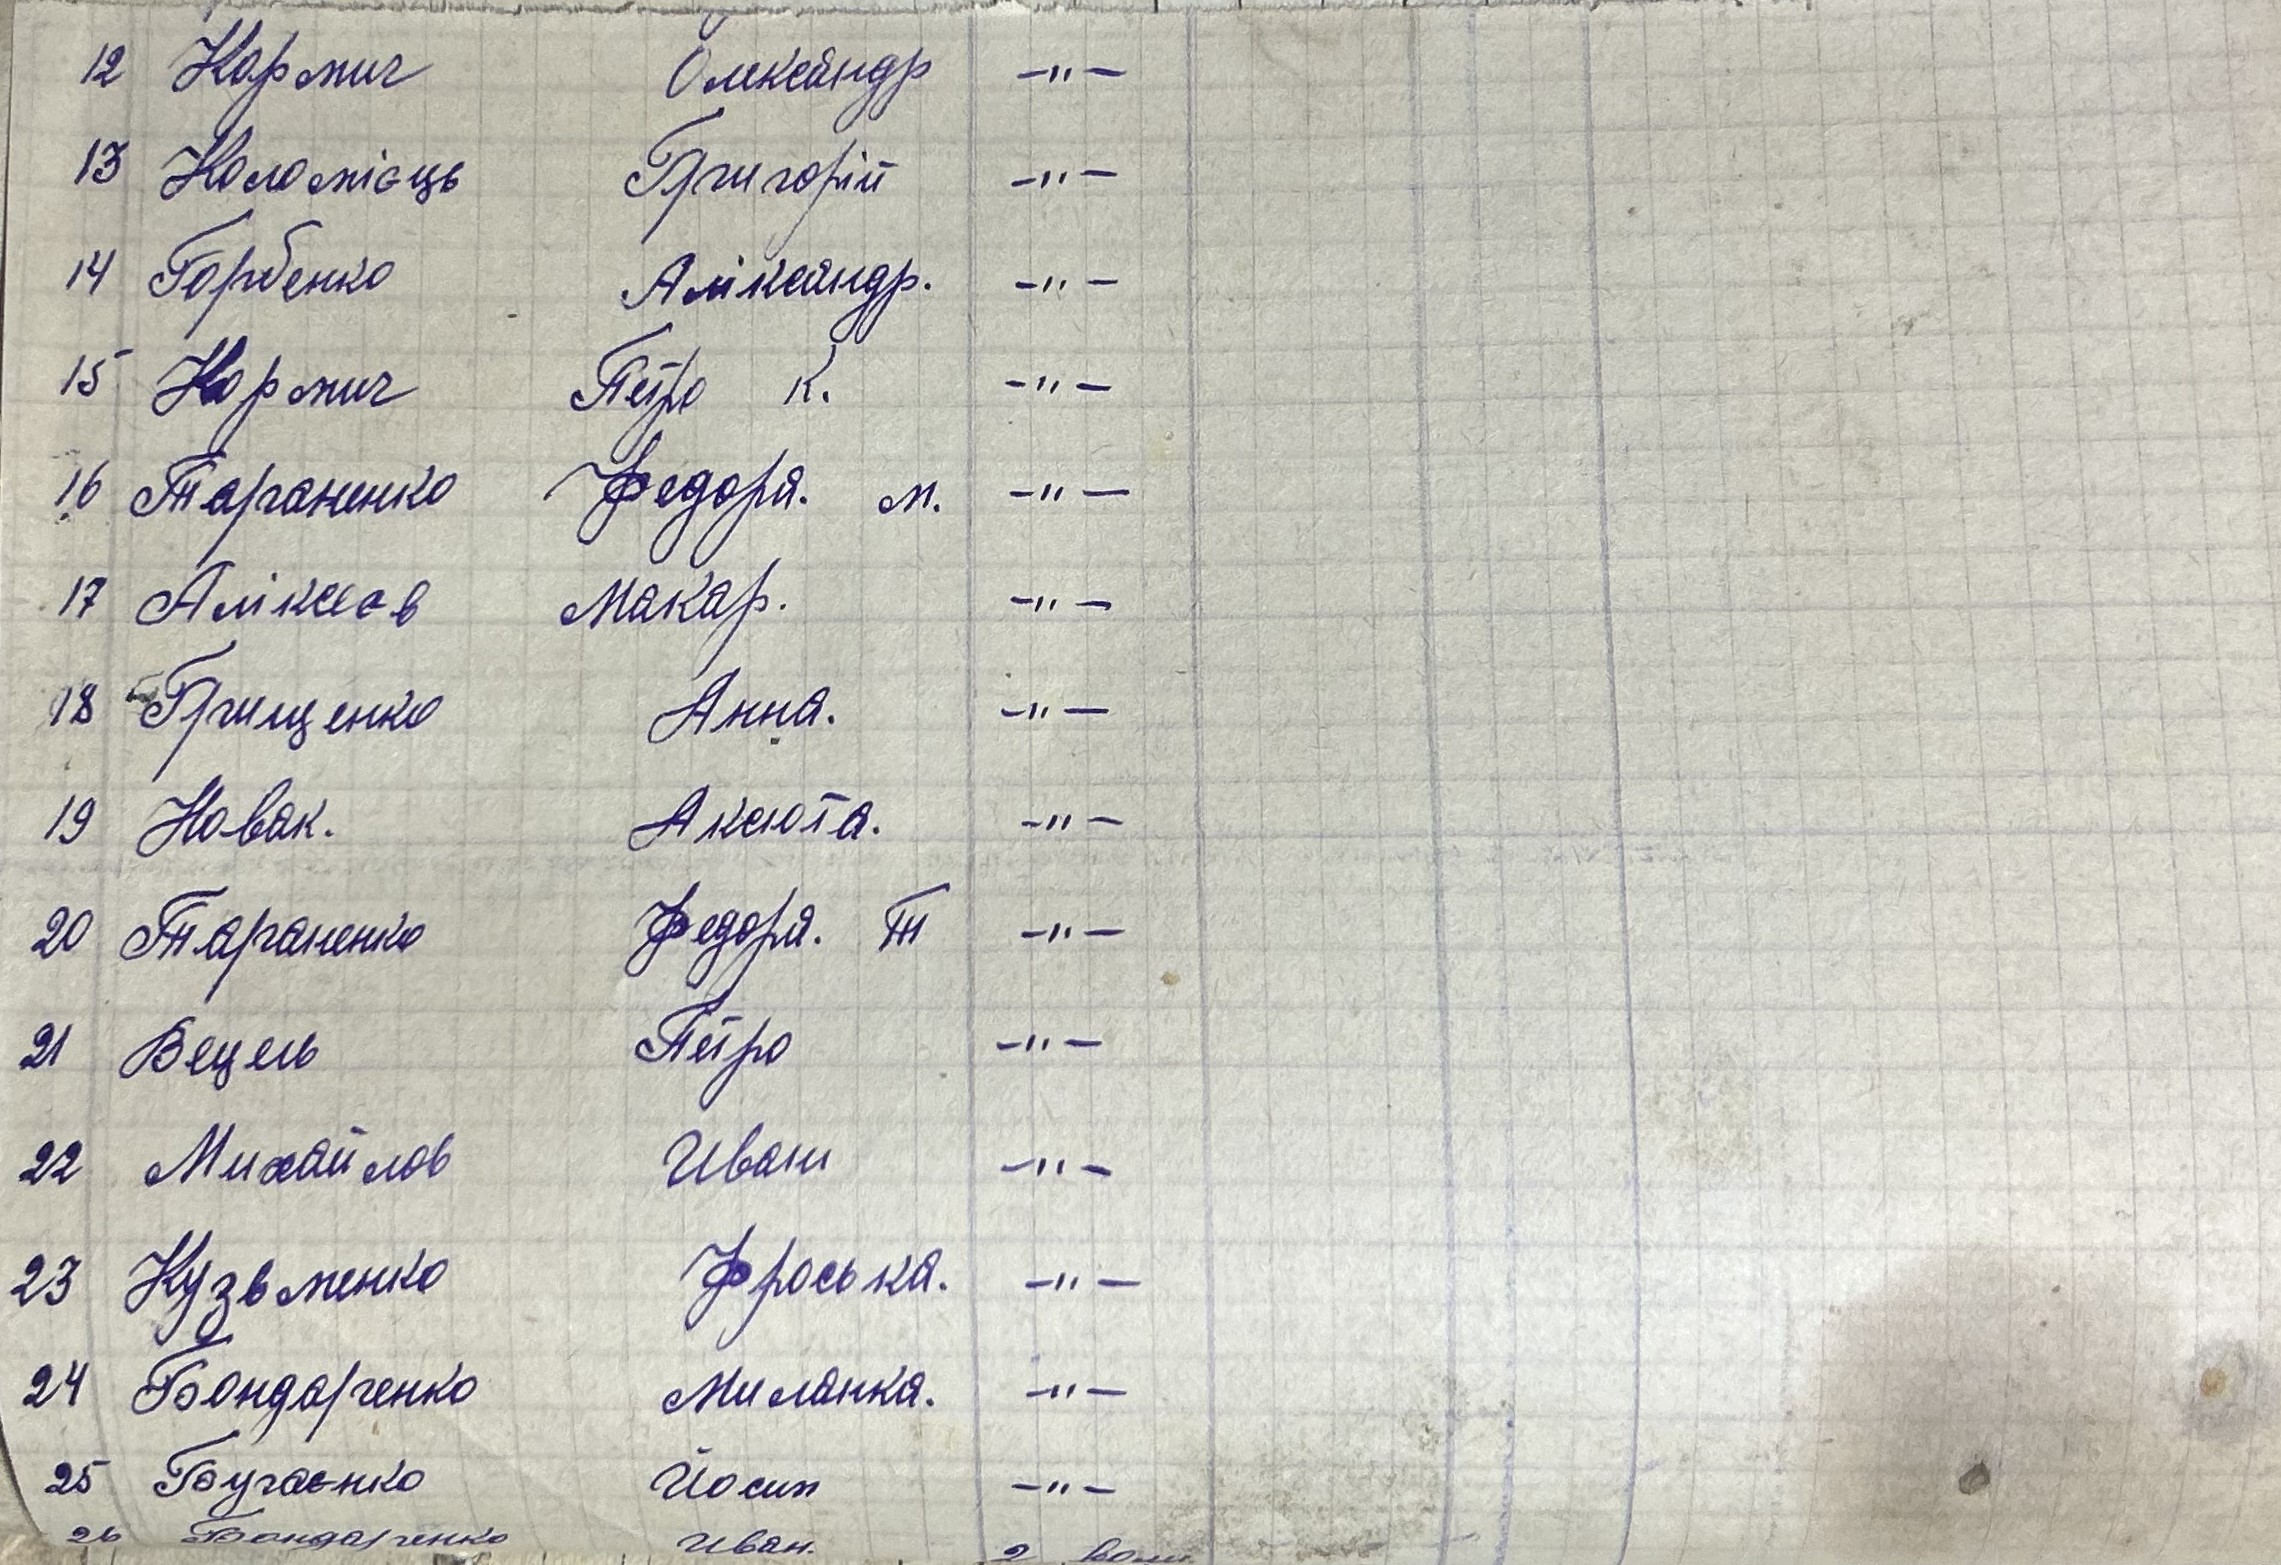 12 Кормич Олександр -"-
13 Коломієць Григорій -"-
14 Горбенко Аліксандр. -"-
15 Кормич Петро К. -"-
16 Тараненко Федора. М. -"-
17 Аліксєєв Макар. -"-
18 Грищенко Анна. -"-
19 Новак. Аксюта. -"-
20 Тараненко Федора. Т -"-
21 Вецель Петро -"-
22 Михайлов Иван -"-
23 Кузьменко Фроська. -"-
24 Бондарченко Миланка. -"-
25 Бугаєнко Йосип -"-
26 Бондарченко Иван. 2